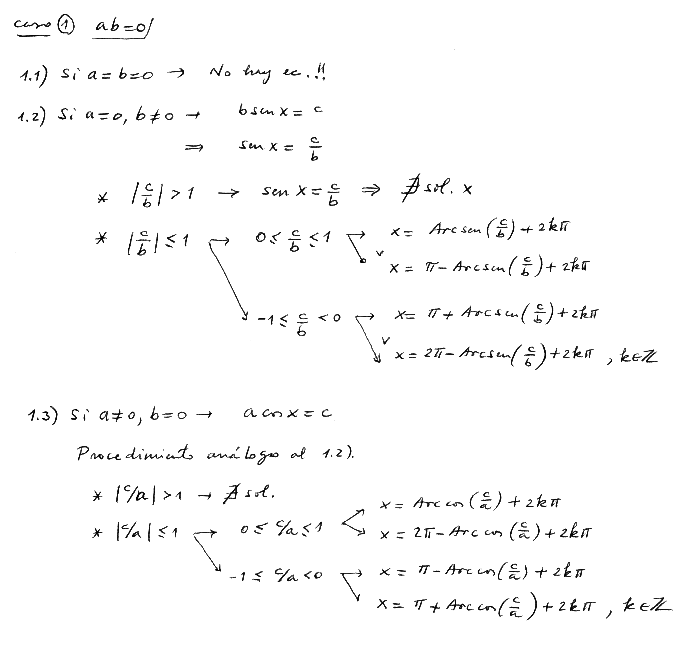 caso ① ab=0/
1.1) Si a=b=0 → No hay ec.!!
1.2) Si a=0, b≠0 → b sen x = c
⇒ sen x = c/b
* |c/b|>1 → sen x = c/b ⇒ ∄ sol. x
* |c/b|≤1 → 0≤ c/b ≤1 → x = Arcsen(c/b)+2kπ
v x = π-Arcsen(c/b)+2kπ
-1≤ c/b <0 → x= π+Arcsen(c/b)+2kπ
v x=2π-Arcsen(c/b)+2kπ, k∈ℤ
1.3) Si a≠0, b=0 → a cos x = c
Procedimiento análogo al 1.2).
* |c/a|>1 → ∄ sol.
* |c/a|≤1 → 0≤ c/a ≤1 x = Arccos(c/a)+2kπ
x = 2π-Arccos(c/a)+2kπ
-1≤ c/a <0 → x = π-Arccos(c/a)+2kπ
x = π+Arccos(c/a)+2kπ, k∈ℤ